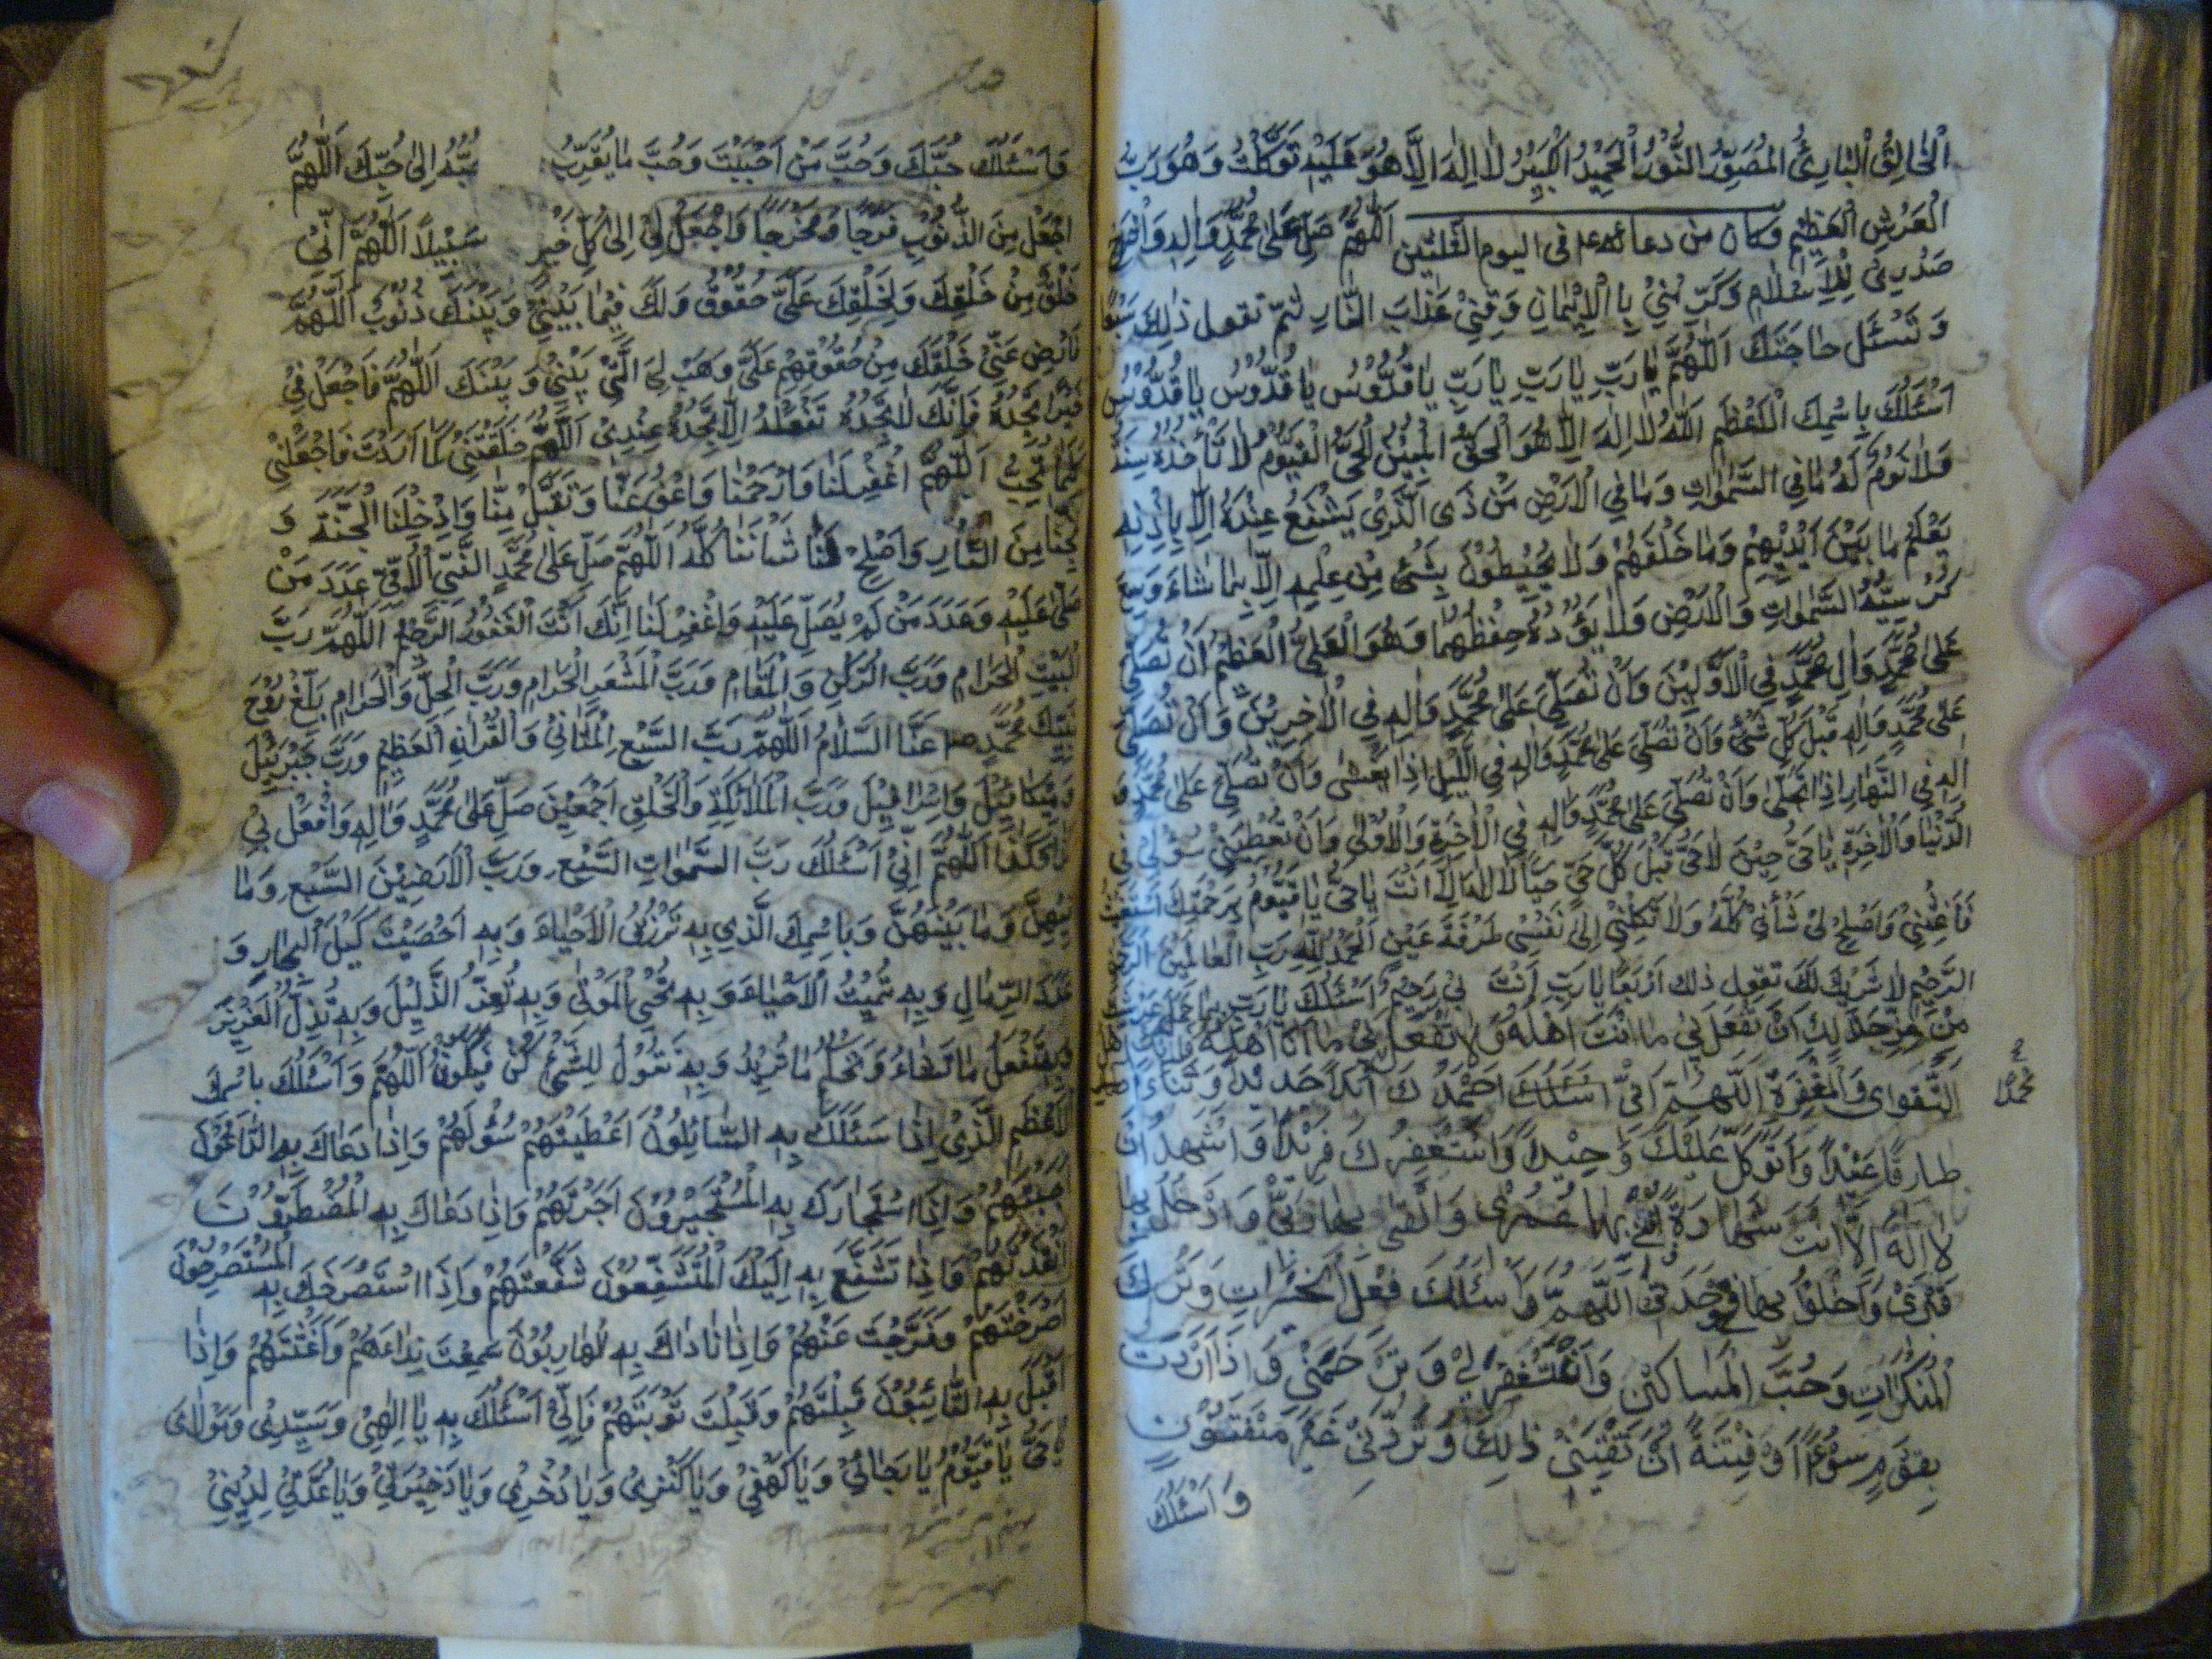 اَلْخالِقُ الْبارِئُ الْمُصَوِّرُ النُّورُ الْحَمِيدُ الْكَبِيرُ لا اِلهَ اِلّا هُوَ عَلَيْهِ تَوَكَّلْتُ وَهُوَ رَبُّ
الْعَرْشِ الْعَظِيمِ وكان من دعائه ع فى اليوم الثلثين اَللّهُمَّ صَلِّ عَلى مُحَمَّدٍ وَالِهِ وَاشْرَحْ
صَدْرِي لِلْاِسْلامِ وَكَرِّمْنِي بِالْاِيمانِ وَقِنِي عَذابَ النّارِ ثمّ تقول ذلِكَ سَبْعًا
وَتَسْئَلُ حاجَتَكَ اَللّهُمَّ يا رَبِّ يا رَبِّ يا رَبِّ يا قُدُّوسُ يا قُدُّوسُ يا قُدُّوسُ
اَسْئَلُكَ بِاسْمِكَ الْاَعْظَمِ اَللّهُ لا اِلهَ اِلّا هُوَ الْحَقُّ الْمُبِينُ الْحَيُّ الْقَيُّومُ لا تَأْخُذُهُ سِنَةٌ
وَلا نَوْمٌ لَهُ ما فِي السَّمواتِ وَما فِي الْاَرْضِ مَنْ ذَا الَّذِي يَشْفَعُ عِنْدَهُ اِلّا بِاِذْنِهِ
يَعْلَمُ ما بَيْنَ اَيْدِيهِمْ وَما خَلْفَهُمْ وَلا يُحِيطُونَ بِشَيْءٍ مِنْ عِلْمِهِ اِلّا بِما شاءَ وَسِعَ
كُرْسِيُّهُ السَّمواتِ وَالْاَرْضَ وَلا يَؤُدُهُ حِفْظُهُما وَهُوَ الْعَلِيُّ الْعَظِيمُ اَنْ تُصَلِّيَ
عَلى مُحَمَّدٍ وَالِ مُحَمَّدٍ فِي الْاَوَّلِينَ وَاَنْ تُصَلِّيَ عَلى مُحَمَّدٍ وَالِهِ فِي الْاخِرِينَ وَاَنْ تُصَلِّيَ
عَلى مُحَمَّدٍ وَالِهِ قَبْلَ كُلِّ شَيْءٍ وَاَنْ تُصَلِّيَ عَلى مُحَمَّدٍ وَالِهِ فِي اللَّيْلِ اِذا يَغْشى وَاَنْ تُصَلِّيَ عَلى مُحَمَّدٍ وَ
الِهِ فِي النَّهارِ اِذا تَجَلّى وَاَنْ تُصَلِّيَ عَلى مُحَمَّدٍ وَالِهِ فِي الْاخِرَةِ وَالْاُولى وَاَنْ تُعْطِيَنِي سُؤْلِي فِي
الدُّنْيا وَالْاخِرَةِ يا حَيُّ حِينَ لا حَيَّ قَبْلَ كُلِّ حَيٍّ حَيًّا لا اِلهَ اِلّا اَنْتَ يا حَيُّ يا قَيُّومُ بِرَحْمَتِكَ اَسْتَغِيثُ
فَاَغِثْنِي وَاَصْلِحْ لِي شَأْنِي كُلَّهُ وَلا تَكِلْنِي اِلى نَفْسِي طَرْفَةَ عَيْنٍ اَلْحَمْدُ لِلّهِ رَبِّ الْعالَمِينَ
الرَّحِيمِ لا شَرِيكَ لَكَ تقول ذلك اَرْبَعًا يا رَبِّ اَنْتَ لِي رَحِيمٌ اَسْئَلُكَ يا رَبِّ بِما حَمَلَ عَرْشُكَ
مِنْ عِزِّ جَلالِكَ اَنْ تَفْعَلَ بِي ما اَنْتَ اَهْلُهُ وَلا تَفْعَلْ بِي ما اَنَا اَهْلُهُ فَاِنَّكَ اَهْلُ
التَّقْوى وَالْمَغْفِرَةِ اَللّهُمَّ اِنِّي اَسْئَلُكَ اَحْمَدُكَ اَبَدًا جَدِيدًا وَثَناءً
طارِقًا عَتِيدًا وَاَتَوَكَّلُ عَلَيْكَ وَحِيدًا وَاَسْتَغْفِرُكَ فَرِيدًا وَاَشْهَدُ اَنْ
لا اِلهَ اِلّا اَنْتَ شَهادَةً اُفْنِي بِها عُمْرِي وَاَلْقى بِها رَبِّي وَاَدْخُلُ بِها
قَبْرِي وَاَخْلُو بِها فِي وَحْدَتِي اَللّهُمَّ وَاَسْئَلُكَ فِعْلَ الْخَيْراتِ وَتَرْكَ
الْمُنْكَراتِ وَحُبَّ الْمَساكِينِ وَاَنْ تَغْفِرَ لِي وَتَرْحَمَنِي وَاِذا اَرَدْتَ
بِقَوْمٍ سُوءًا اَوْ فِتْنَةً اَنْ تَقِيَنِي ذلِكَ وَتَرُدَّنِي غَيْرَ مَفْتُونٍ
وَاَسْئَلُكَ
وَاَسْئَلُكَ حُبَّكَ وَحُبَّ مَنْ اَحْبَبْتَ وَحُبَّ ما يُقَرِّبُ حُبُّهُ اِلى حُبِّكَ اَللّهُمَّ
اجْعَلْ مِنَ الذُّنُوبِ فَرَجًا وَمَخْرَجًا وَاجْعَلْ لِي اِلى كُلِّ خَيْرٍ سَبِيلًا اَللّهُمَّ اِنِّي
خَلْقٌ مِنْ خَلْقِكَ وَلِخَلْقِكَ عَلَيَّ حُقُوقٌ وَلَكَ فِيما بَيْنِي وَبَيْنَكَ ذُنُوبٌ اَللّهُمَّ
فَاَرْضِ عَنِّي خَلْقَكَ مِنْ حُقُوقِهِمْ عَلَيَّ وَهَبْ لِيَ الَّتِي بَيْنِي وَبَيْنَكَ اَللّهُمَّ فَاجْعَلْ فِيَّ
خَيْرًا تَجِدُهُ فَاِنَّكَ لا تَجِدُهُ تَفْعَلْهُ اِلّا تَجِدُهُ عِنْدِي اَللّهُمَّ خَلَقْتَنِي كَما اَرَدْتَ فَاجْعَلْنِي
كَما تُحِبُّ اَللّهُمَّ اغْفِرْ لَنا وَارْحَمْنا وَاعْفُ عَنّا وَتَقَبَّلْ مِنّا وَاَدْخِلْنَا الْجَنَّةَ وَ
نَجِّنا مِنَ النّارِ وَاَصْلِحْ لَنا شَأْنَنا كُلَّهُ اَللّهُمَّ صَلِّ عَلى مُحَمَّدٍ النَّبِيِّ الْاُمِّيِّ عَدَدَ مَنْ
صَلّى عَلَيْهِ وَعَدَدَ مَنْ لَمْ يُصَلِّ عَلَيْهِ وَاغْفِرْ لَنا اِنَّكَ اَنْتَ الْغَفُورُ الرَّحِيمُ اَللّهُمَّ رَبَّ
الْبَيْتِ الْحَرامِ وَرَبَّ الرُّكْنِ وَالْمَقامِ وَرَبَّ الْمَشْعَرِ الْحَرامِ وَرَبَّ الْحِلِّ وَالْحَرامِ بَلِّغْ رُوحَ
نَبِيِّكَ مُحَمَّدٍ ص عَنَّا السَّلامَ اَللّهُمَّ رَبَّ السَّبْعِ الْمَثانِي وَالْقُرْانِ الْعَظِيمِ وَرَبَّ جَبْرَئِيلَ
وَمِيكائِيلَ وَاِسْرافِيلَ وَرَبَّ الْمَلائِكَةِ وَالْخَلْقِ اَجْمَعِينَ صَلِّ عَلى مُحَمَّدٍ وَالِهِ وَافْعَلْ بِي
كَذا وَكَذا اَللّهُمَّ اِنِّي اَسْئَلُكَ رَبَّ السَّمواتِ السَّبْعِ وَرَبَّ الْاَرَضِينَ السَّبْعِ وَما
فِيهِنَّ وَما بَيْنَهُنَّ وَبِاسْمِكَ الَّذِي بِهِ تَرْزُقُ الْاَحْياءَ وَبِهِ اَحْصَيْتَ كَيْلَ الْبِحارِ وَ
عَدَدَ الرِّمالِ وَبِهِ تُمِيتُ الْاَحْياءَ وَبِهِ تُحْيِي الْمَوْتى وَبِهِ تُعِزُّ الذَّلِيلَ وَبِهِ تُذِلُّ الْعَزِيزَ
وَبِهِ تَفْعَلُ ما تَشاءُ وَتَحْكُمُ ما تُرِيدُ وَبِهِ تَقُولُ لِلشَّيْءِ كُنْ فَيَكُونُ اَللّهُمَّ وَاَسْئَلُكَ بِاسْمِكَ
الْاَعْظَمِ الَّذِي اِذا سَئَلَكَ بِهِ السّائِلُونَ اَعْطَيْتَهُمْ سُؤْلَهُمْ وَاِذا دَعاكَ بِهِ الدّاعُونَ
اَجَبْتَهُمْ وَاِذَا اسْتَجارَكَ بِهِ الْمُسْتَجِيرُونَ اَجَرْتَهُمْ وَاِذا دَعاكَ بِهِ الْمُضْطَرُّونَ
اَنْقَذْتَهُمْ وَاِذا تَشَفَّعَ بِهِ اِلَيْكَ الْمُتَشَفِّعُونَ شَفَّعْتَهُمْ وَاِذَا اسْتَصْرَخَكَ بِهِ الْمُسْتَصْرِخُونَ
اَصْرَخْتَهُمْ وَفَرَّجْتَ عَنْهُمْ وَاِذا ناداكَ بِهِ الْهارِبُونَ سَمِعْتَ نِداءَهُمْ وَاَغَثْتَهُمْ وَاِذا
اَقْبَلَ بِهِ التّائِبُونَ قَبِلْتَهُمْ وَقَبِلْتَ تَوْبَتَهُمْ فَاِنِّي اَسْئَلُكَ بِهِ يا اِلهِي وَسَيِّدِي وَمَوْلايَ
يا حَيُّ يا قَيُّومُ يا رَجائِي وَيا كَهْفِي وَيا كَنْزِي وَيا ذُخْرِي وَيا ذَخِيرَتِي وَيا عُدَّتِي لِدِينِي